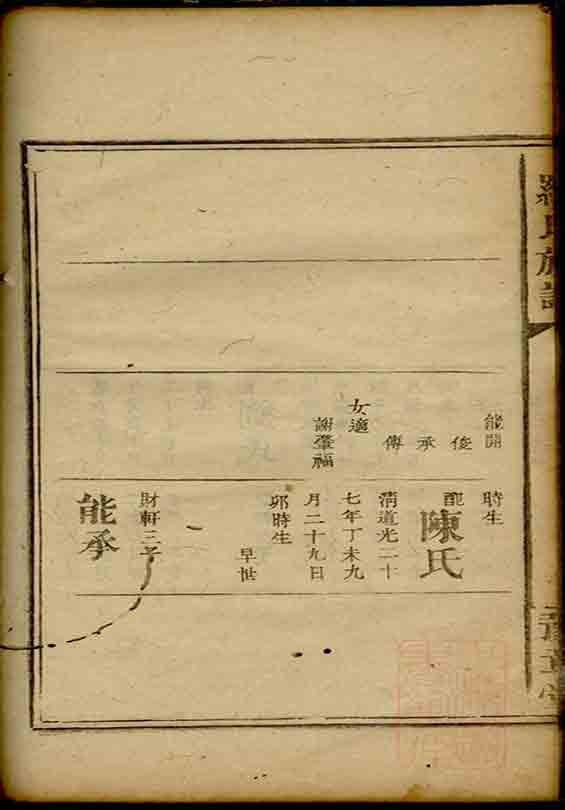 羅氏族譜
豫章堂
能開
俊
承
傳
女適
謝肇福
時生
配陳氏
清道光二十
七年丁未九
月二十九日
卯時生
早世
財軒三子
能承